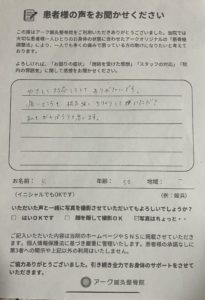 患者様の声をお聞かせください
この度はアーク鍼灸整骨院をご利用いただきありがとうございました。当院では
大切な患者様一人ひとりのお身体の状態に合わせたアークオリジナルの「患者様
に、一人でも多くの痛みで困っている方の助けになりたいと考えて
おります。
よろしければ、「お困りの症状」「施術を受けた感想」「スタッフの対応」「院
内の雰囲気」に関して感想をお聞かせください。
やさしく対応して ありがたいです。
お名前： K 年齢： 50 地域：
(イニシャルでもOKです) (例：姫浜)
いただいた声と一緒に写真を撮影させていただいてもよろしいでしょうか？
□ はいOKです □ 顔を隠して撮影OK ☑写真はちょっと・・
ご記入いただいた内容は当院のホームページやSNSに掲載させていただき
ます。個人情報保護法に基づき厳重に管理いたします。患者様の承諾なしに
第3者への開示や上記以外の利用はいたしません。
ご協力ありがとうございました。引き続き全力でお身体のサポートをさせて
いただきます。
アーク鍼灸整骨院